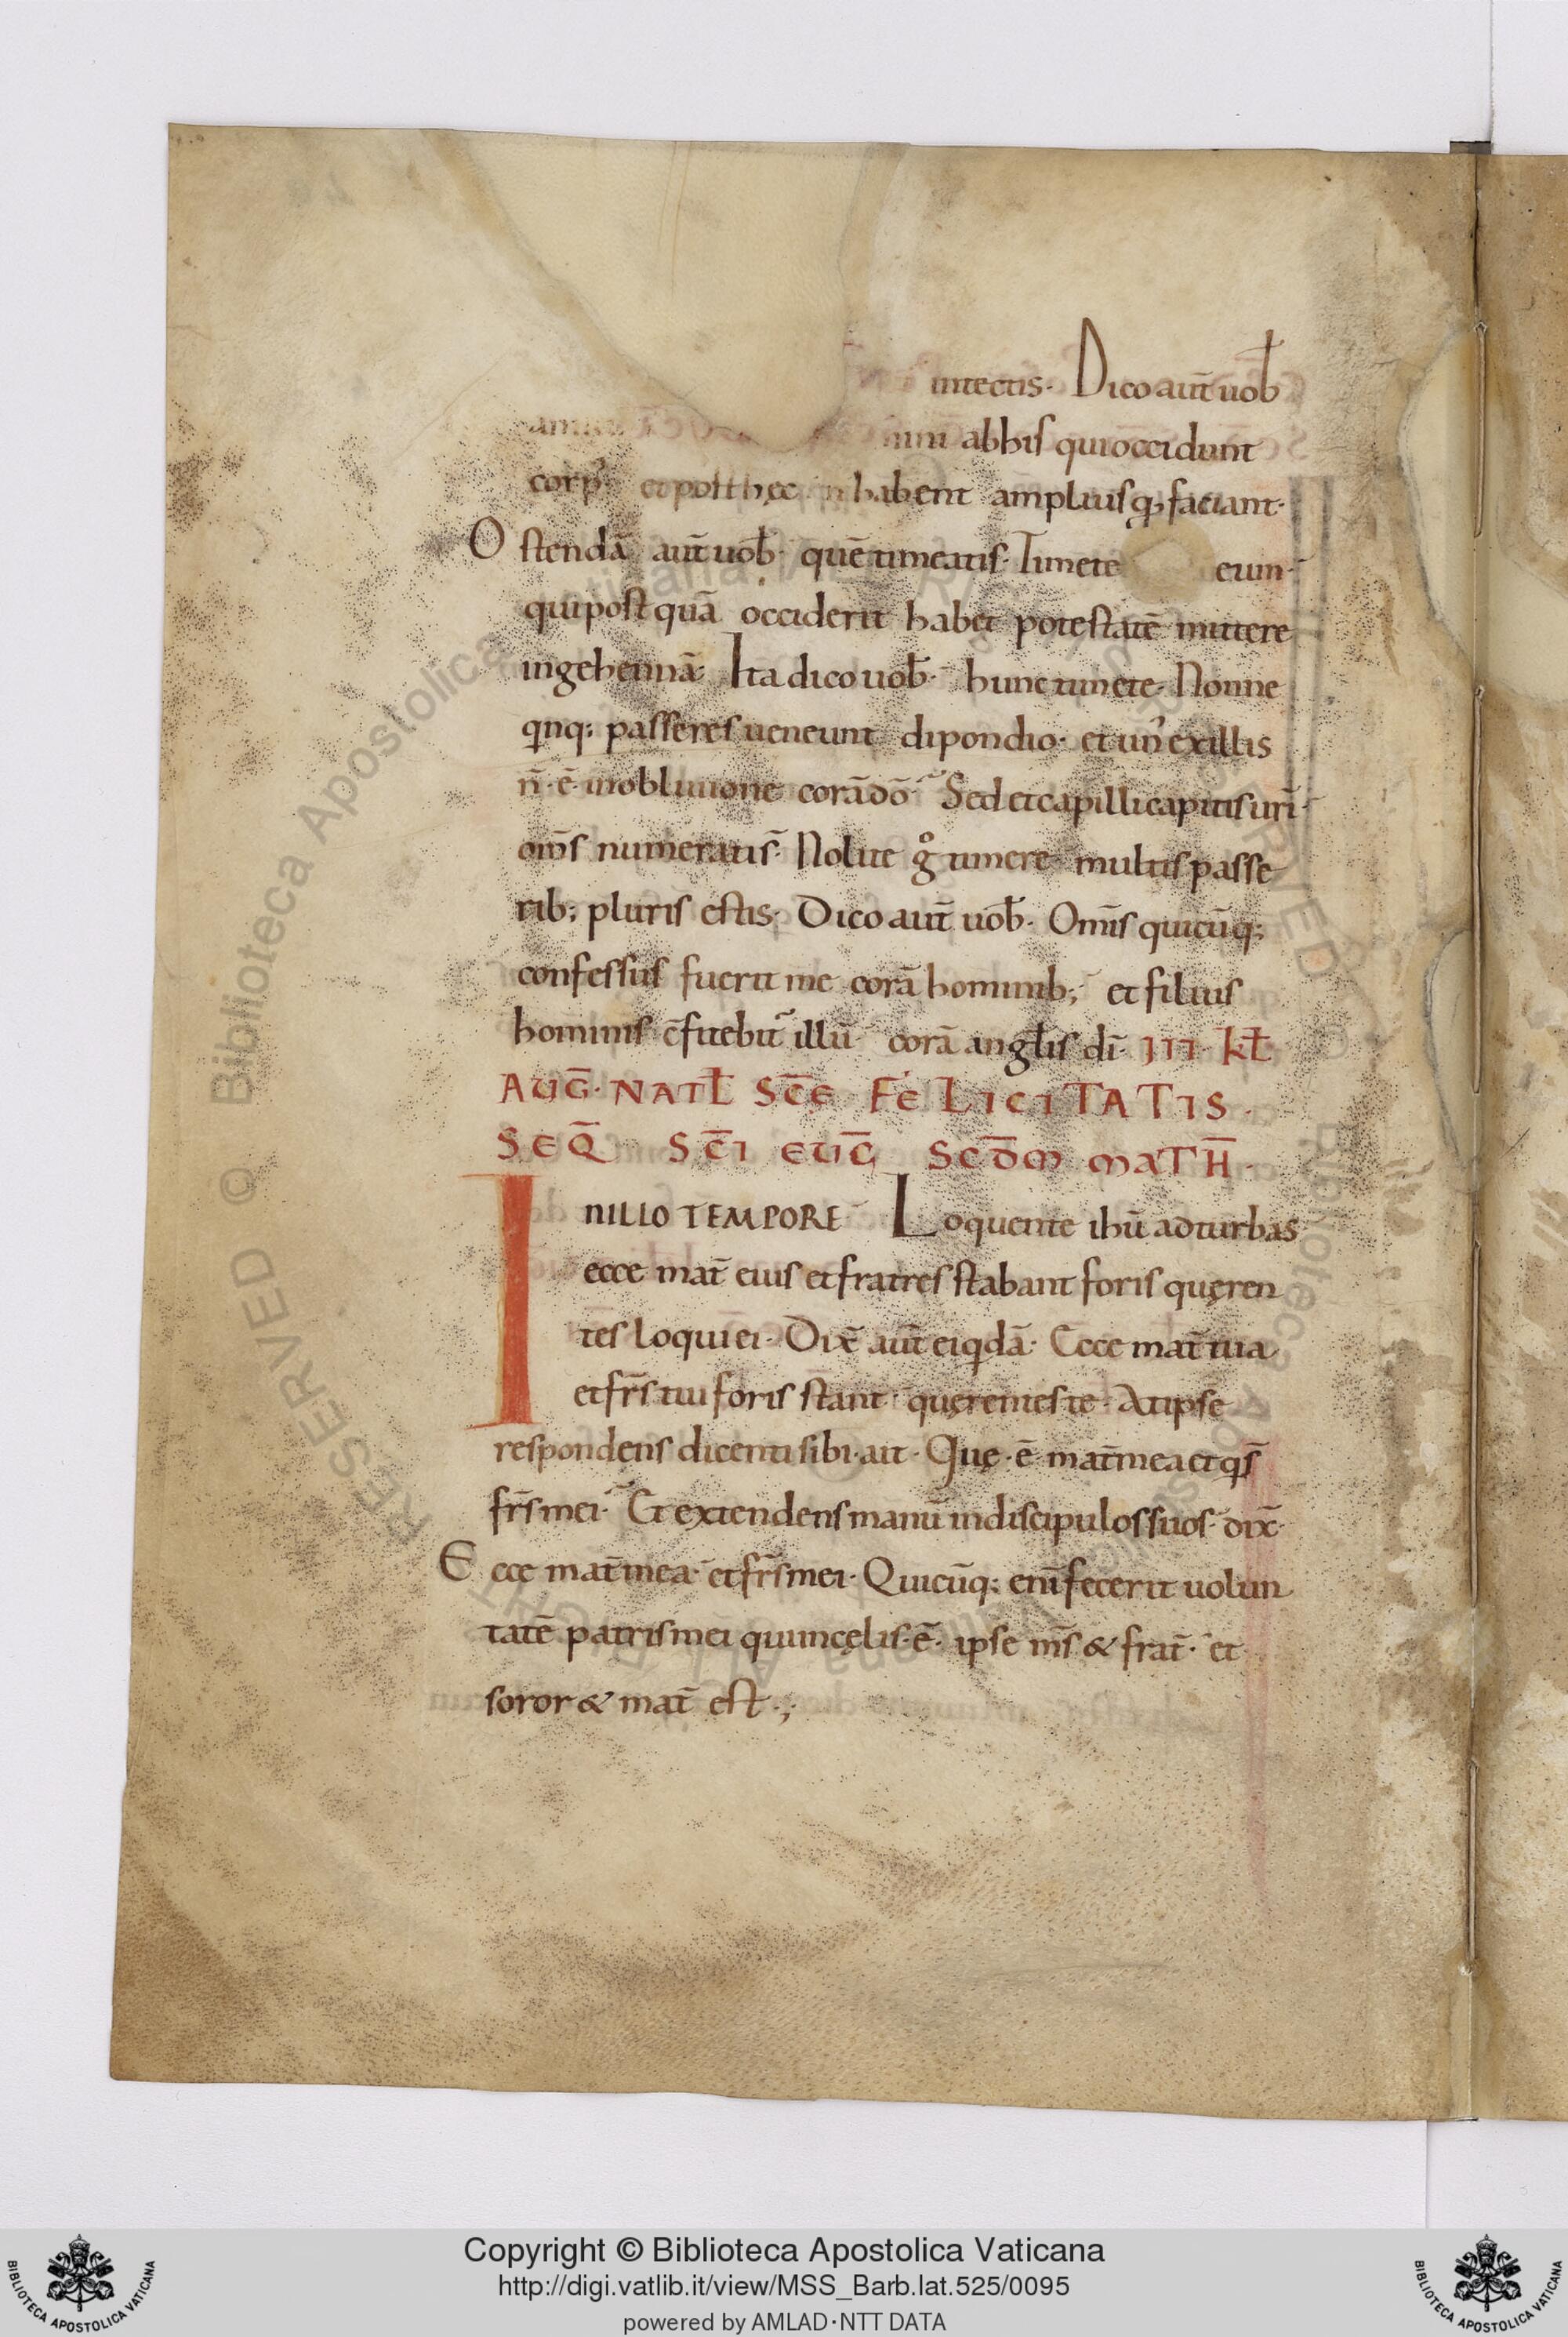 intectis· Dico aut̄ uob̄
amici mini abhis qui occidunt
corpꝰ et post hęc n̄ habent ampliusq; faciant·
Ostendā aut̄ uob̄· quē timeatis· Timete eum·
qui post quā occiderit habet potestatē mittere
ingehennā· Ita dico uob̄· hunc timete· Nonne
qnq: passeres ueneunt dipondio· et unꝰ exillis
n̄·ē· inobliuione corā dō· Sed et capilli capitis uri̅·
om̄s numerati s̄· Nolite gͦ timere· multis passe
rib; pluris estis· Dico aut̄ uob̄· Om̄is quicūq;
confessus fuerit me corā hominib; et filius
hominis c̄fitebit̃ illū corā angl̄is dī· III· kl̄
AUḠ· NATL̄ SC̄E FELICITATIS·
SEQ̄ SC̄I EUḠ SCD̄M MATH̄·
INILLO TEMPORE Loquente ihū ad turbas
ecce mat̄ eius et fratres stabant foris quęren
tes loqui ei· Dix̄ aut̄ ei qdā· Ecce mat̄ tua
et fr̄s tui foris stant· quęrentes te· At ipse
respondens dicenti sibi· ait· Quę·ē· mat̄ mea et qs̄
fr̄s mei· Et extendens manū indiscipulos suos· dix̄·
Ecce mat̄ mea· et fr̄s mei· Quicūq: enī fecerit uolun
tatē patris mei qui incęlis·ē· ipse m̄s & frat̄· et
soror & mat̄ est·;
Copyright © Biblioteca Apostolica Vaticana
http://digi.vatlib.it/view/MSS_Barb.lat.525/0095
powered by AMLAD·NTT DATA